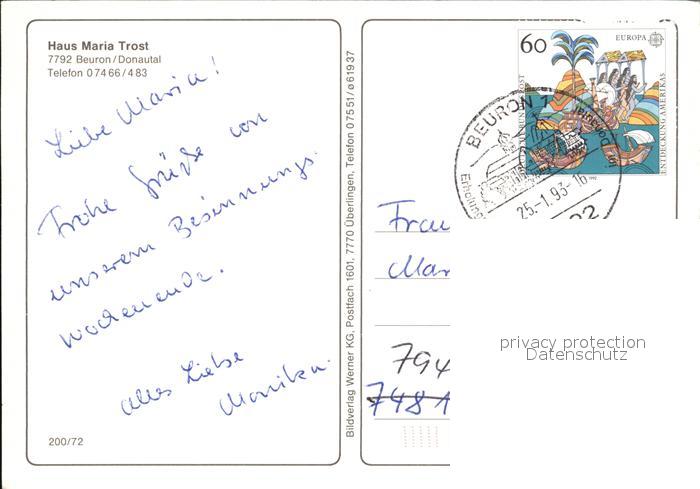 Haus Maria Trost
7792 Beuron/Donautal
Telefon 07466/483
Liebe Maria!
Frohe Grüße von
unserem Besinnungs-
wochenende.
Alles Liebe
Monika.
200/72
Bildverlag Werner KG, Postfach 1601, 7770 Überlingen, Telefon 07551/ø61937
60
EUROPA
ENTDECKUNG AMERIKAS
BEURON 1
25.-1.93-16
Frau
Mar
794
7481
privacy protection
Datenschutz